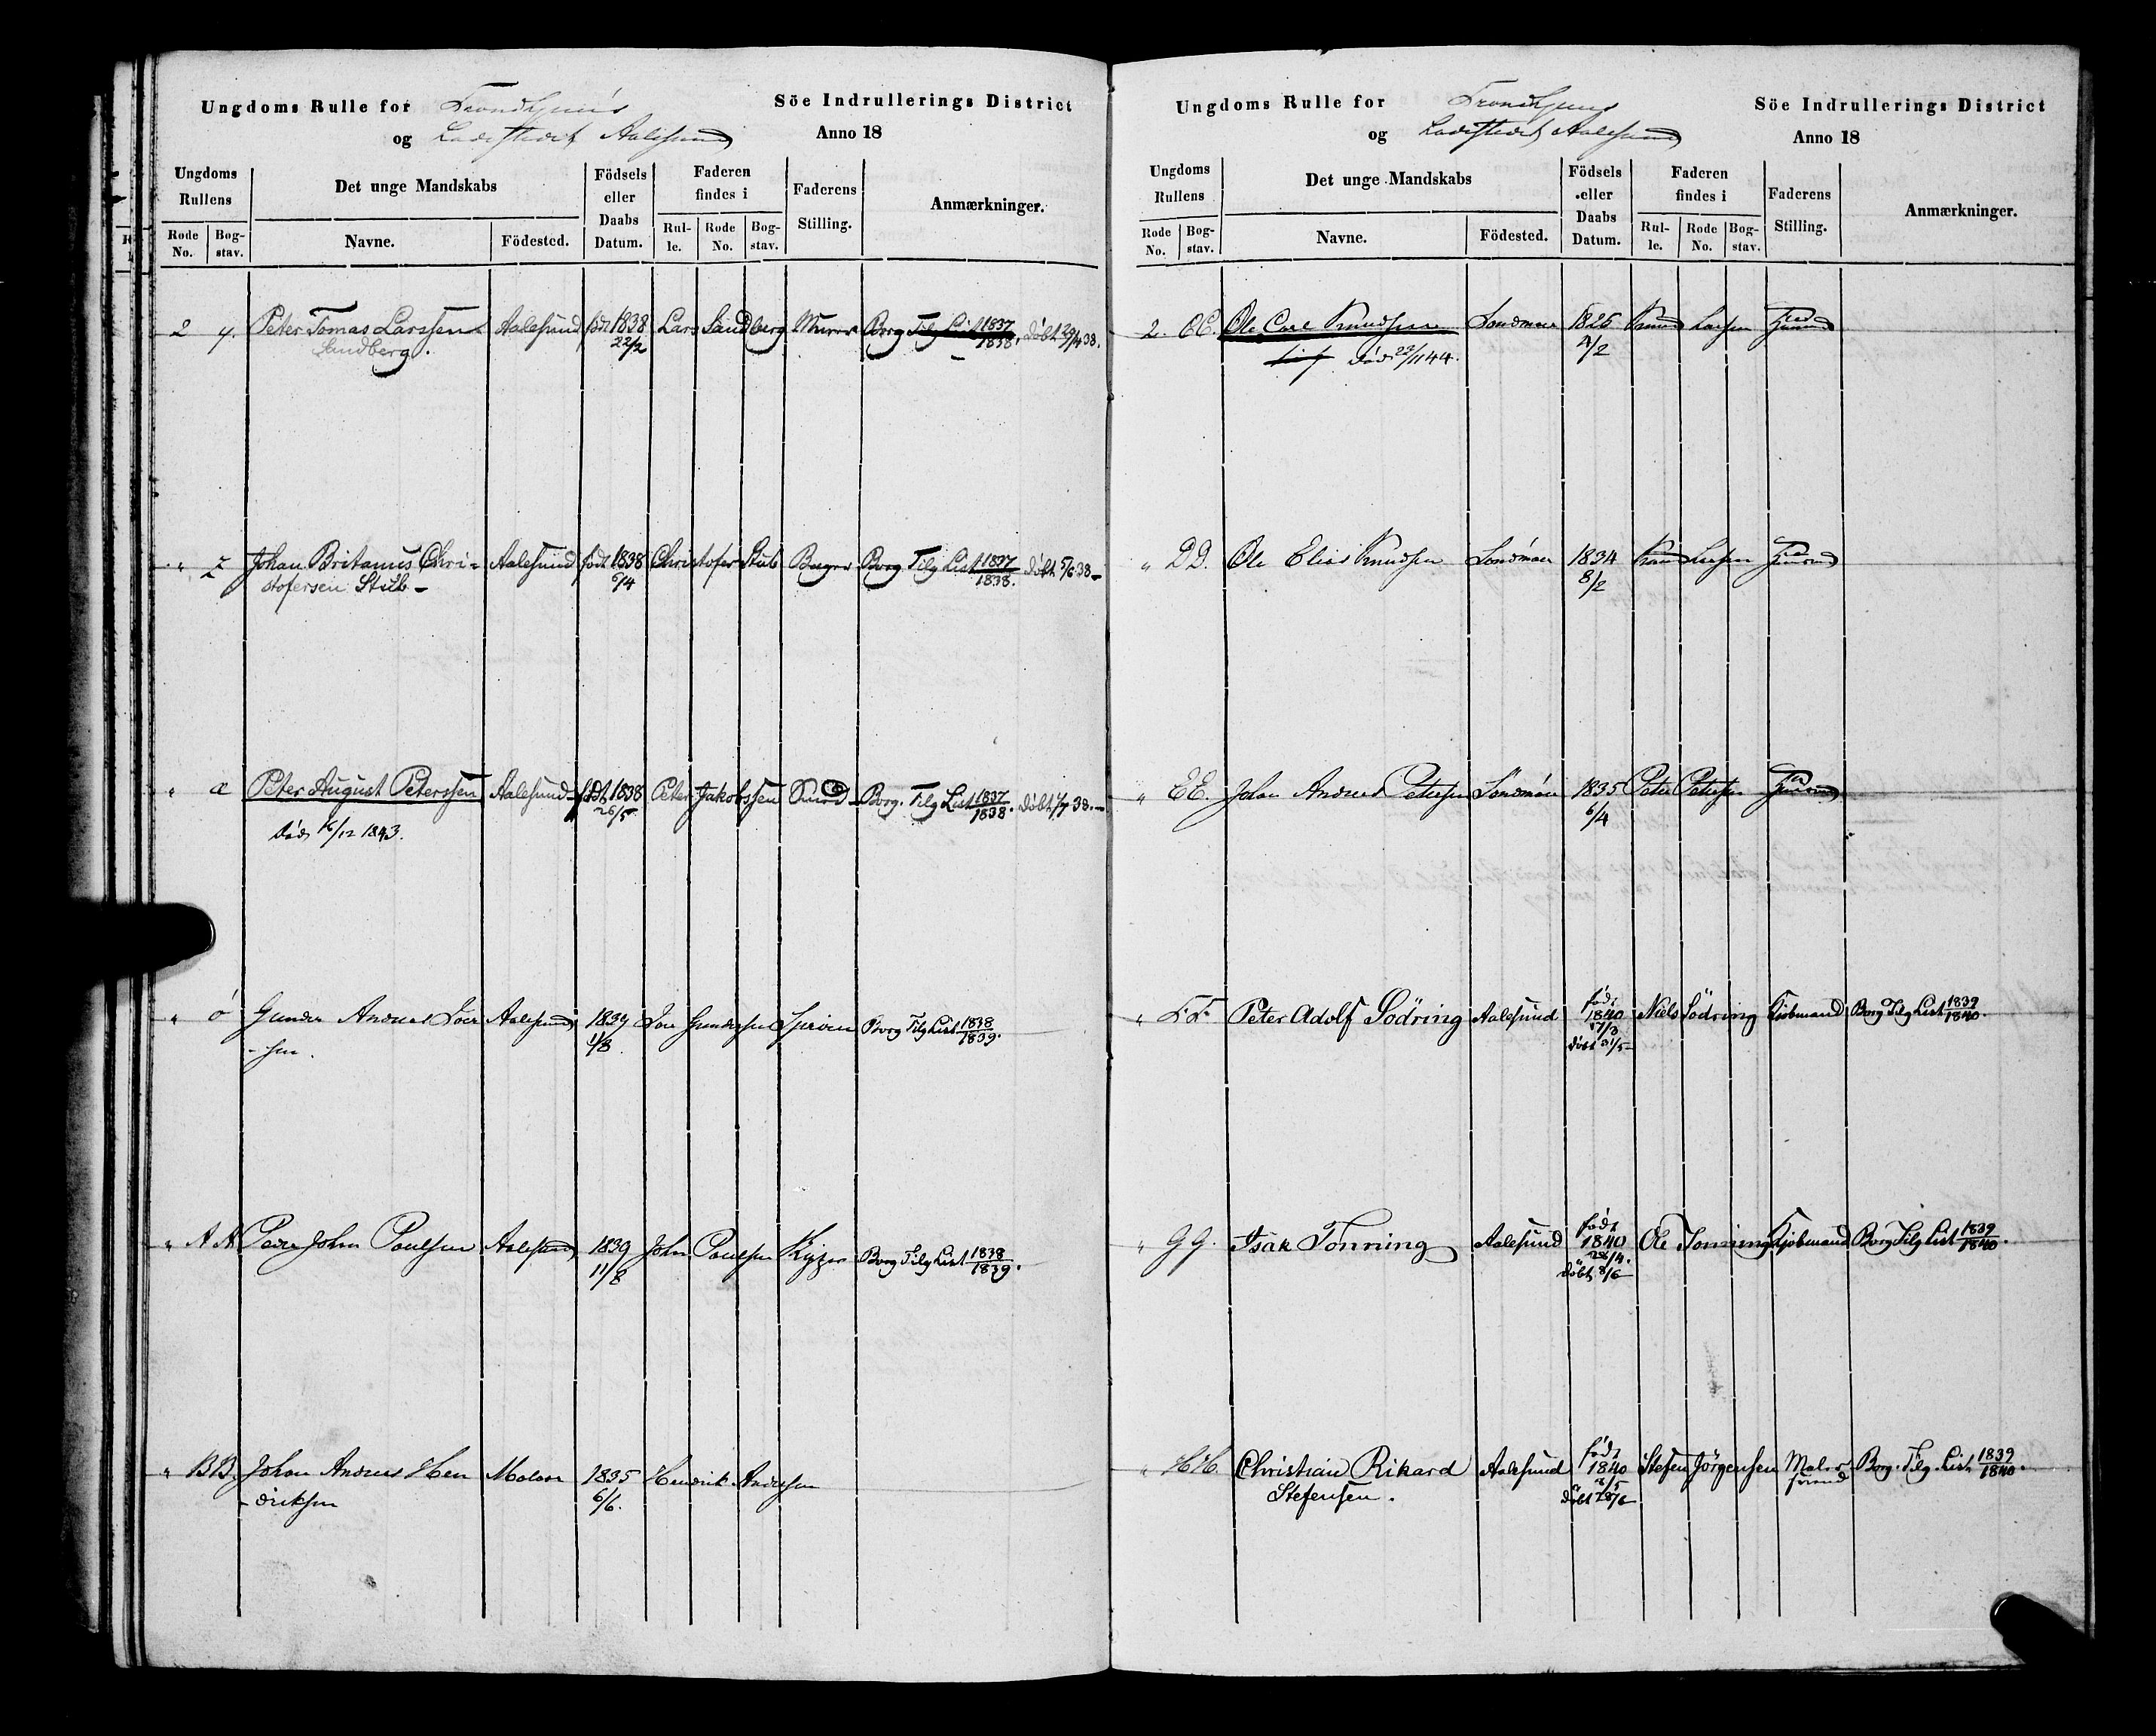 Ungdoms Rulle for Trondhjems Söe Indrullerings District
og Ladestedet Aalesund Anno 18
Ungdoms Rullens
Det unge Mandskabs
Födsels eller Daabs Datum.
Faderen findes i
Faderens Stilling.
Anmærkninger.
Rode No. Bog-stav. Navne. Födested. Rul-le. Rode No. Bog-stav.
2 y. Peter Tomas Larssen Aalesund födt 1838 Lars Sandberg Murer Borg Tilg List 1837/1838. döbt 29/4 38.
Sandberg. 22/2
" z Johan Britanus Chri- Aalesund födt 1838 Christofer Stub Borger Borg Tilg List 1837/1838. döbt 5/6 38
stofersen Stub 6/4
" æ Peter August Peterssen Aalesund födt 1838 Peter Jakobssen Borg. Tilg List 1837/1838. döbt 1/7 38.
26/5
död 16/12 1843.
" ö Gunder Andreas Aalesund 1839 Gundersen Borg Tilg List 1838/1839.
-sen. 1/8
" AA Peder John Poulsen Aalesund 1839 John Poulsen Kyper Borg Tilg List 1838/1839.
11/8
" BB. Johan Andreas Hen Molde 1835 Hendrik Andersen
-driksen 6/6.
Ungdoms Rulle for Trondhjems Söe Indrullerings District
og Ladestedet Aalesund Anno 18
Ungdoms Rullens
Det unge Mandskabs
Födsels eller Daabs Datum.
Faderen findes i
Faderens Stilling.
Anmærkninger.
Rode No. Bog-stav. Navne. Födested. Rul-le. Rode No. Bog-stav.
2. CC. Ole Carl Knudsen Söndmöre 1826 Knud Larsen
död 23/11 44. 4/2
" DD. Ole Elias Knudsen Söndmöre 1834 Knud Larsen
8/2
" EE. Johan Andreas Petersen Söndmöre 1835 Peter Petersen
6/4
" FF. Peter Adolf Södring Aalesund födt 1840 Niels Södring Kjöbmand Borg Tilg List 1839/1840.
17/3
döbt 31/5
" GG. Isak Tonning Aalesund födt 1840 Ole Tonning Kjöbmand Borg Tilg List 1839/1840.
28/4.
döbt 8/6
" HH. Christian Rikard Aalesund födt 1840 Stefen Jörgensen Maler svend Borg. Tilg. List 1839/1840.
Stefensen. döbt 28/6